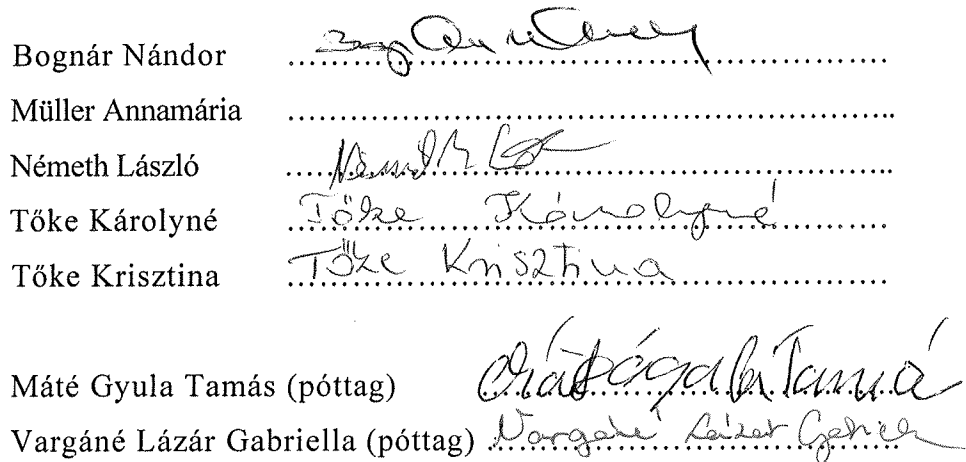 Bognár Nándor ..........
Müller Annamária ..........
Németh László ..........
Tőke Károlyné Tőke Károlyné
Tőke Krisztina Tőke Krisztina
Máté Gyula Tamás (póttag) ..........
Vargáné Lázár Gabriella (póttag) ..........